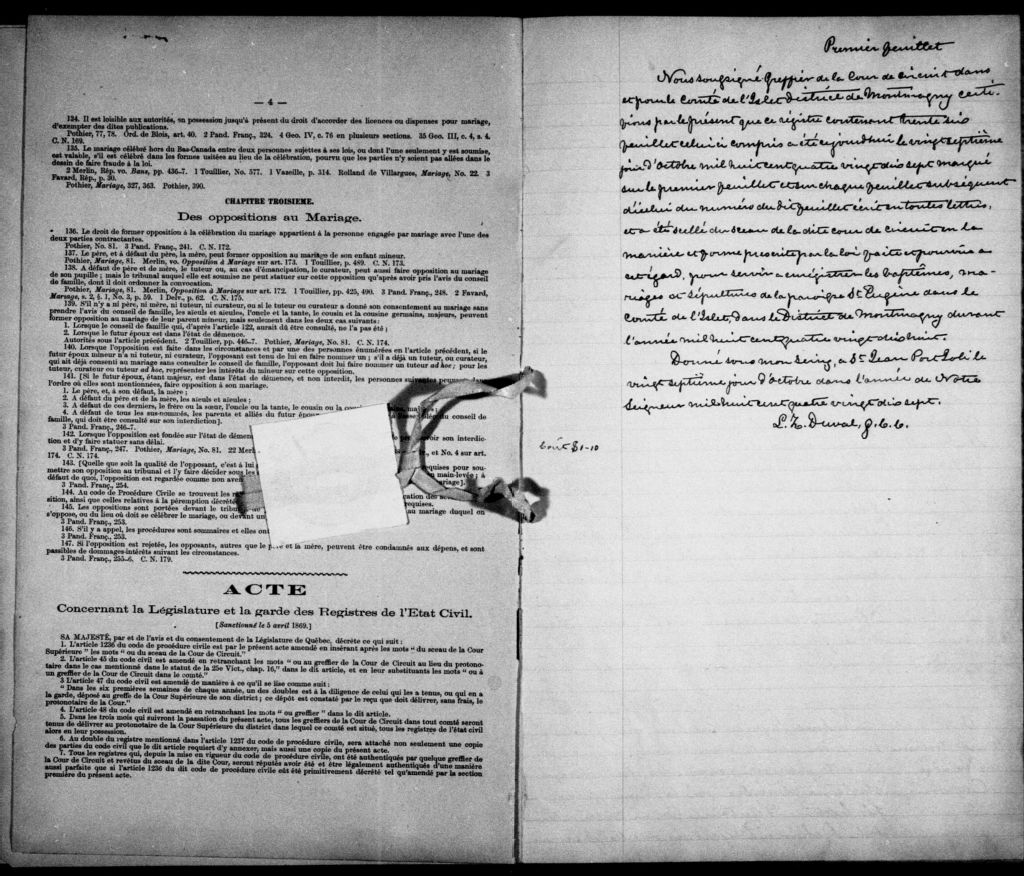 — 4 —
134. Il est loisible aux autorités, en possession jusqu'à présent du droit d'accorder des licences ou dispenses pour mariage,
d'exempter des dites publications.
Pothier, 77, 78. Ord. de Blois, art. 40. 2 Pand. Franç., 324. 4 Geo. IV, c. 76 en plusieurs sections. 35 Geo. III, c. 4, s. 4.
C. N. 169.
135. Le mariage célébré hors du Bas-Canada entre deux personnes sujettes à ses lois, ou dont l'une seulement y est soumise,
est valable, s'il est célébré dans les formes usitées au lieu de la célébration, pourvu que les parties n'y soient pas allées dans le
dessin de faire fraude à la loi.
2 Merlin, Rép. vo. Bans, pp. 436-7. 1 Touillier, No. 577. 1 Vazeille, p. 314. Rolland de Villargues, Mariage, No. 22. 3
Favard, Rép., p. 30.
Pothier, Mariage, 327, 363. Pothier, 390.
CHAPITRE TROISIEME.
Des oppositions au Mariage.
136. Le droit de former opposition à la célébration du mariage appartient à la personne engagée par mariage avec l'une des
deux parties contractantes.
Pothier, No. 81. 3 Pand. Franç., 241. C. N. 172.
137. Le père, et à défaut du père, la mère, peut former opposition au mariage de son enfant mineur.
Pothier, Mariage, 81. Merlin, vo. Opposition à Mariage sur art. 173. 1 Touillier, p. 489. C. N. 173.
138. A défaut de père et de mère, le tuteur ou, au cas d'émancipation, le curateur, peut aussi faire opposition au mariage
de son pupille ; mais le tribunal auquel elle est soumise ne peut statuer sur cette opposition qu'après avoir pris l'avis du conseil
de famille, dont il doit ordonner la convocation.
Pothier, Mariage, 81. Merlin, Opposition à Mariage sur art. 172. 1 Touillier, pp. 425, 490. 3 Pand. Franç., 248. 2 Favard,
Mariage, s. 2, § 1, No. 3, p. 59. 1 Delv., p. 62. C. N. 175.
139. S'il n'y a ni père, ni mère, ni tuteur, ni curateur, ou si le tuteur ou curateur a donné son consentement au mariage sans
prendre l'avis du conseil de famille, les aieuls et aieules, l'oncle et la tante, le cousin et la cousine germains, majeurs, peuvent
former opposition au mariage de leur parent mineur, mais seulement dans les deux cas suivants :
1. Lorsque le conseil de famille qui, d'après l'article 122, aurait dû être consulté, ne l'a pas été ;
2. Lorsque le futur époux est dans l'état de démence.
Autorités sous l'article précédent. 2 Touillier, pp. 446-7. Pothier, Mariage, No. 81. C. N. 174.
140. Lorsque l'opposition est faite dans les circonstances et par une des personnes énumérées en l'article précédent, si le
futur époux mineur n'a ni tuteur, ni curateur, l'opposant est tenu de lui en faire nommer un ; s'il a déjà un tuteur, ou curateur,
qui ait déjà consenti au mariage sans consulter le conseil de famille, l'opposant doit lui faire nommer un tuteur ad hoc ; pour les
tuteur, curateur ou tuteur ad hoc, représenter les intérêts du mineur sur cette opposition.
141. [Si le futur époux, étant majeur, est dans l'état de démence, et non interdit, les personnes suivantes peuvent dans
l'ordre où elles sont mentionnées, faire opposition à son mariage.
1. Le père, et à son défaut, la mère ;
2. A défaut du père et de la mère, les aieuls et aieules ;
3. A défaut de ces derniers, le frère ou la sœur, l'oncle ou la tante, le cousin ou la
4. A défaut de tous les sus-nommés, les parents et alliés du futur époux conseil de
famille, qui doit être consulté sur son interdiction].
3 Pand. Franç., 246-7.
142. Lorsque l'opposition est fondée sur l'état de démen son interdic-
tion et d'y faire statuer sans délai.
3 Pand. Franç., 247. Pothier, Mariage, No. 81. 22 Merl et No. 4 sur art.
174. C. N. 174.
143. [Quelle que soit la qualité de l'opposant, c'est à lui quises pour sou-
mettre son opposition au tribunal et l'y faire décider sous les main-levée ; à
défaut de quoi, l'opposition est regardée comme non aven ariage].
3 Pand. Franç., 254.
144. Au code de Procédure Civile se trouvent les r cation des
sition, ainsi que celles relatives à la péremption décrété equises.
145. Les oppositions sont portées devant le tribu au mariage duquel on
s'oppose, ou du lieu où doit se célébrer le mariage, ou devant un
3 Pand. Franç., 253.
146. S'il y a appel, les procédures sont sommaires et elles ont
3 Pand. Franç., 253.
147. Si l'opposition est rejetée, les opposants, autres que le père et la mère, peuvent être condamnés aux dépens, et sont
passibles de dommages-intérêts suivant les circonstances.
3 Pand. Franç., 255-6. C. N. 179.
ACTE
Concernant la Législature et la garde des Registres de l'Etat Civil.
[Sanctionné le 5 avril 1869.]
SA MAJESTÉ, par et de l'avis et du consentement de la Législature de Québec, décrète ce qui suit :
1. L'article 1236 du code de procédure civile est par le présent acte amendé en insérant après les mots " du sceau de la Cour
Supérieure " les mots " ou du sceau de la Cour de Circuit."
2. L'article 45 du code civil est amendé en retranchant les mots " ou au greffier de la Cour de Circuit au lieu du protono-
taire dans le cas mentionné dans le statut de la 25e Vict., chap. 16," dans le dit article, et en leur substituants les mots " ou à
un greffier de la Cour de Circuit dans le comté."
3 L'article 47 du code civil est amendé de manière à ce qu'il se lise comme suit :
" Dans les six premières semaines de chaque année, un des doubles est à la diligence de celui qui les a tenus, ou qui en a
la garde, déposé au greffe de la Cour Supérieure de son district ; ce dépôt est constaté par le reçu que doit délivrer, sans frais, le
protonotaire de la Cour."
4. L'article 48 du code civil est amendé en retranchant les mots " ou greffier " dans le dit article.
5. Dans les trois mois qui suivront la passation du présent acte, tous les greffiers de la Cour de Circuit dans tout comté seront
tenus de délivrer au protonotaire de la Cour Supérieure du district dans lequel ce comté est situé, tous les registres de l'état civil
alors en leur possession.
6. Au double du registre mentionné dans l'article 1237 du code de procédure civile, sera attaché non seulement une copie
des parties du code civil que le dit article requiert d'y annexer, mais aussi une copie du présent acte.
7. Tous les registres qui, depuis la mise en vigueur du code de procédure civile, ont été authentiqués par quelque greffier de
la Cour de Circuit et revêtus du sceau de la dite Cour, seront réputés avoir été et être légalement authentiqués d'une manière
aussi parfaite que si l'article 1236 du dit code de procédure civile eût été primitivement décrété tel qu'amendé par la section
première du présent acte.
Premier feuillet
Nous sousigné Greffier de la Cour de circuit dans
et pour le Comté de l'Islet District de Montmagny certi-
fions par le présent que ce régistre contenant trente six
feuillet celui ci compris a été cejourdhui le vingt septième
jour d'octobre mil huit cent quatre vingt dix sept marqué
sur le premier feuillet et sur chaque feuillet subséquent
d'icelui du numéro du dit feuillet écrit en toutes lettres,
et a été scellé du sceau de la dite cour de circuit en la
manière et forme prescrite par la loi faite et pourvue a
cet égard, pour servir a enrégistrer les baptêmes, ma-
riages et sépultures de la paroisse St Eugène dans le
Comté de l'Islet, dans le District de Montmagny durant
l'année mil huit cent quatre vingt dix huit.
Donné sous mon seing, a St Jean Port Joli le
vingt septième jour d'octobre dans l'année de Notre
Seigneur mil huit cent quatre vingt dix sept.
L. Z. Duval, g. C. C.
Coût $1-10